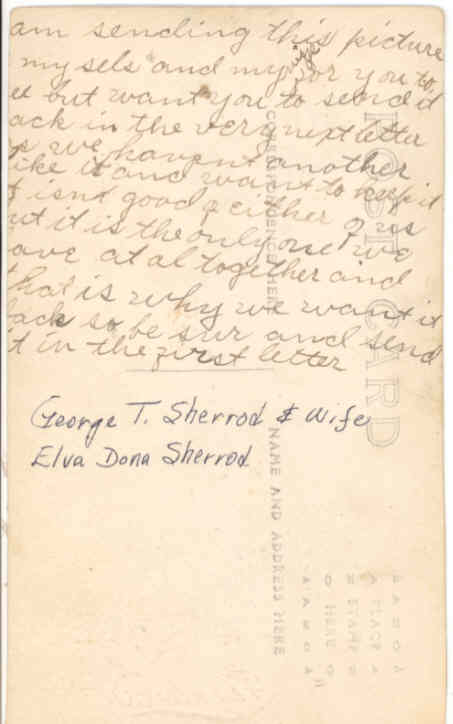 am sending this picture
my sels and my wife for you to
ee but want you to send it
ack in the very next letter
s we havent another
ike it and want to keep it
t isnt good of either of us
ut it is the only one we
ave at al together and
that is why we want it
ack so be sur and send
t in the first letter
George T. Sherrod & Wife
Elva Dona Sherrod
POST CARD
CORRESPONDENCE HERE
NAME AND ADDRESS HERE
PLACE
STAMP
HERE